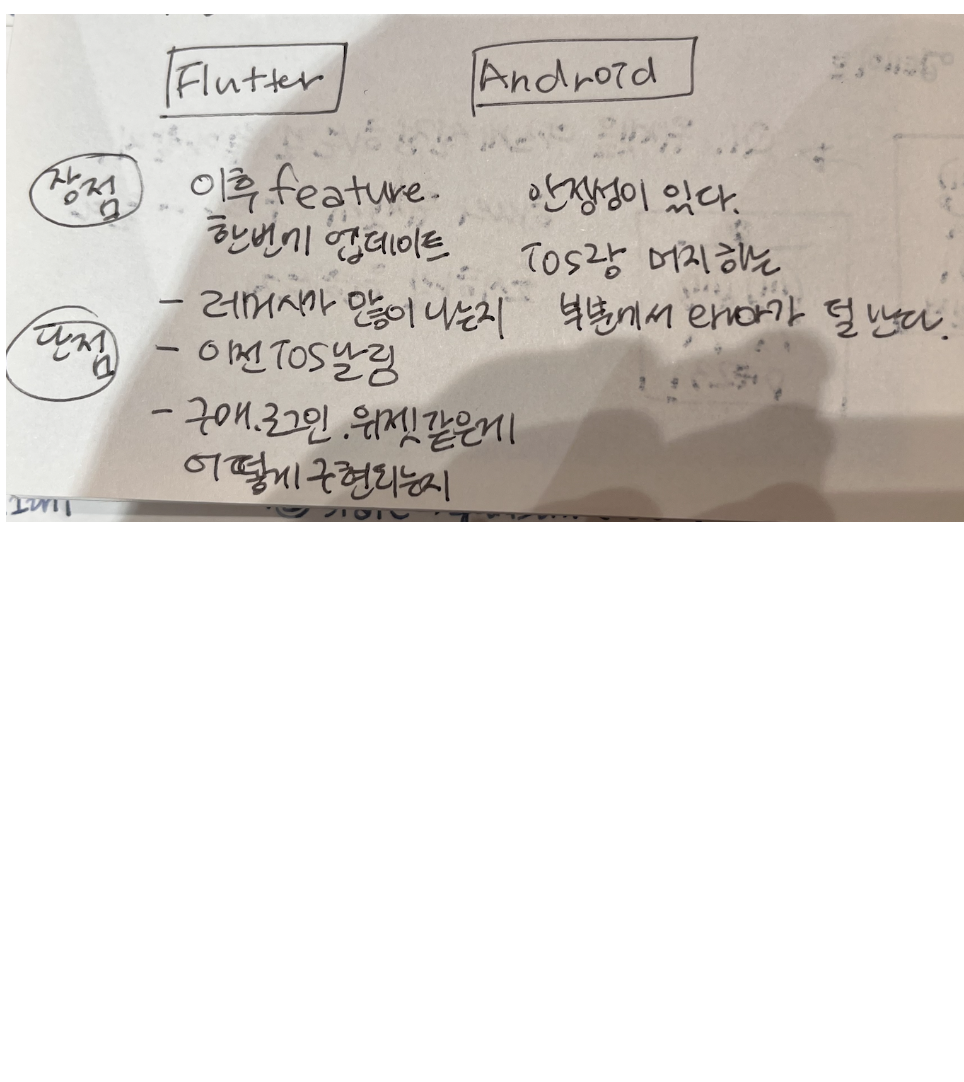 Flutter
Android
장점
이후 feature.
한번에 업데이트
안정성이 있다.
IOS랑 머지하는
부분에서 에러가 덜 난다.
단점
- 레퍼시가 많이 나는지
- 이전 IOS 날림
- 구매.로그인.위젯 같은게
어떻게 구현되는지